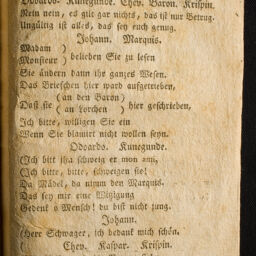 Odoardo. Kunegunde. Chev. Baron. Krispin.
Nein nein, es gilt gar nichts, das ist nur Betrug.
Ungültig ist alles, das sey euch genug.
Johann. Marquis.
Madam )
Monsieur ) belieben Sie zu lesen
Sie ändern dann ihr ganzes Wesen.
Das Briefchen hier ward aufgetrieben,
(an den Baron)
Daß sie (an Lorchen ) hier geschrieben,
Ich bitte, willigen Sie ein
Wenn Sie blamirt nicht wollen seyn.
Odoardo. Kunegunde.
(Ich bitt ihn schweig er mon ami,
(Ich bitte, bitte, schweigen sie!
Du Mädel, da nimm den Marquis.
Das sey mir eine Witzigung
Gedenk o Mensch! du bist nicht jung.
Johann.
(Herr Schwager, ich bedank mich schön.
Chev. Kaspar. Krispin.